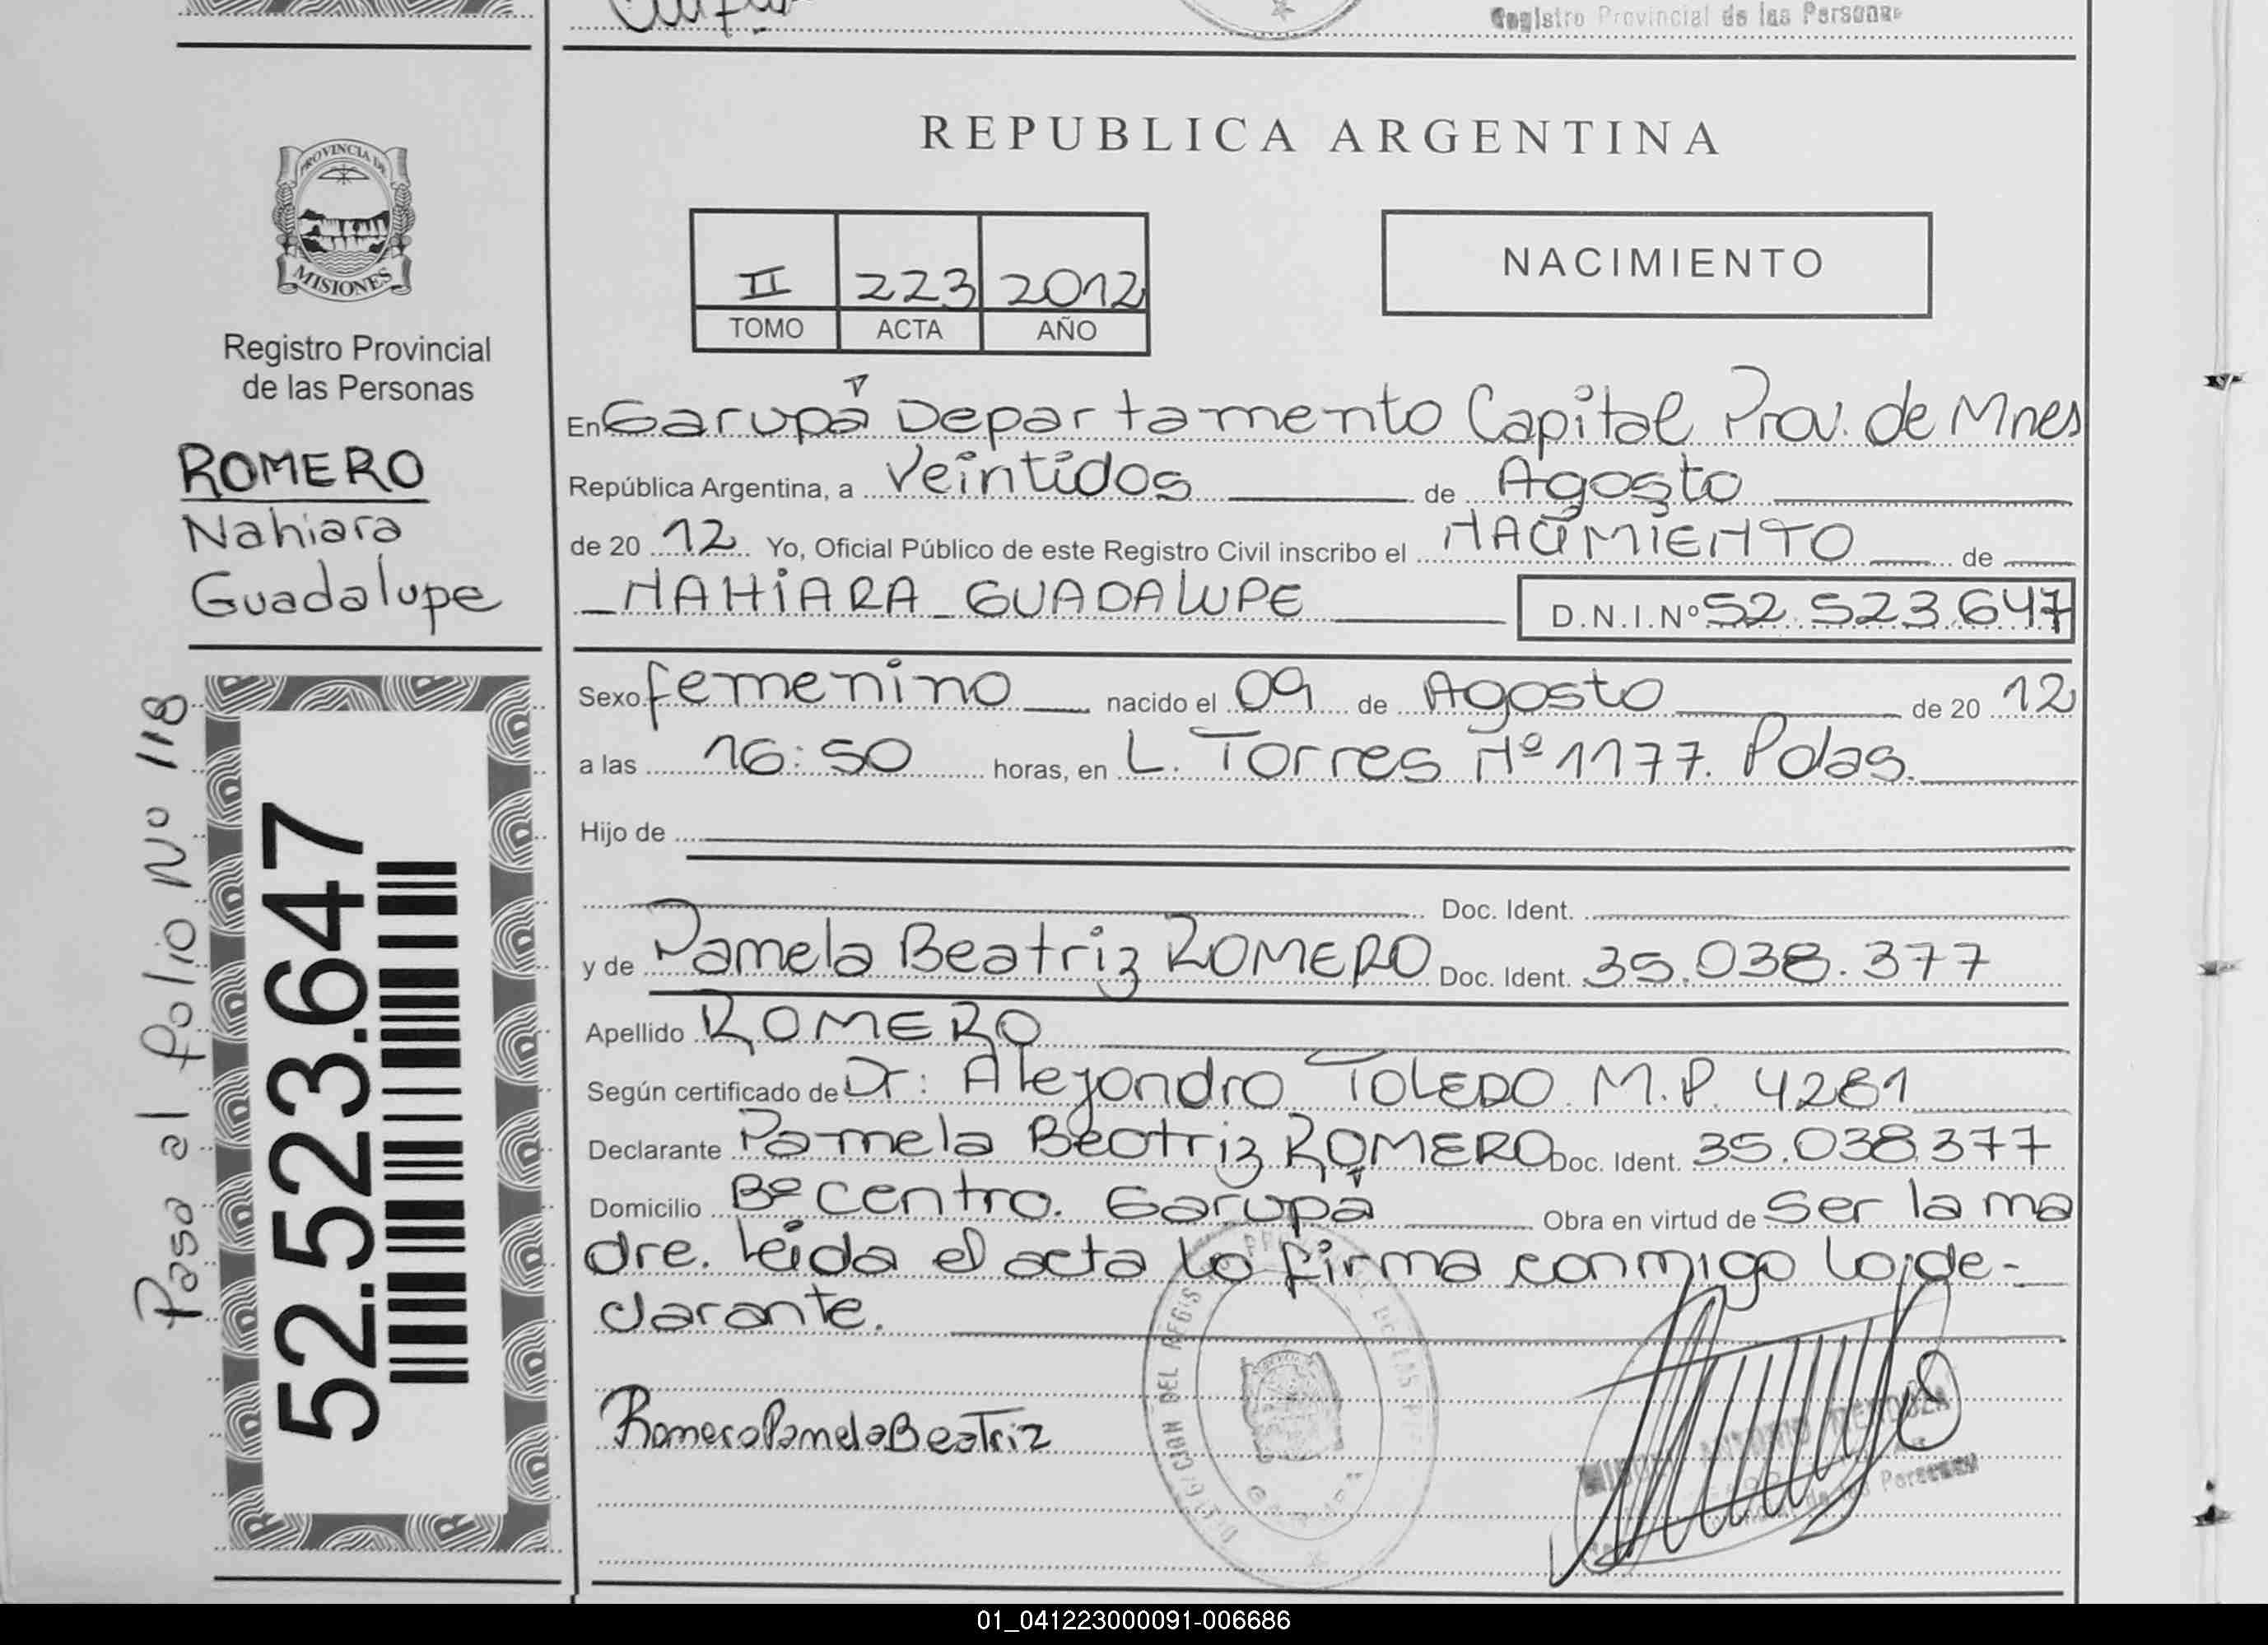 Registro Provincial de las Personas
PROVINCIA DE
MISIONES
Registro Provincial
de las Personas
ROMERO
Nahiara
Guadalupe
Paso al folio Nº 118
52.523.647
REPUBLICA ARGENTINA
II 223 2012
TOMO ACTA AÑO
NACIMIENTO
En Garupá Departamento Capital Prov. de Mnes
República Argentina, a Veintidos de Agosto
de 20 12 Yo, Oficial Público de este Registro Civil inscribo el NACIMIENTO de
NAHIARA GUADALUPE D.N.I.Nº 52.523.647
Sexo femenino nacido el 09 de Agosto de 20 12
a las 16:50 horas, en L. Torres Nº 1177. Pdas.
Hijo de
Doc. Ident.
y de Pamela Beatriz ROMERO Doc. Ident. 35.038.377
Apellido ROMERO
Según certificado de Dr: Alejandro TOLEDO M.P. 4281
Declarante Pamela Beatriz ROMERO Doc. Ident. 35.038.377
Domicilio Bº Centro. Garupá Obra en virtud de Ser la ma
dre. Leida el acta la firma conmigo la de-
clarante.
Romero Pamela Beatriz
ANTONIO MENDOZA
01_041223000091-006686